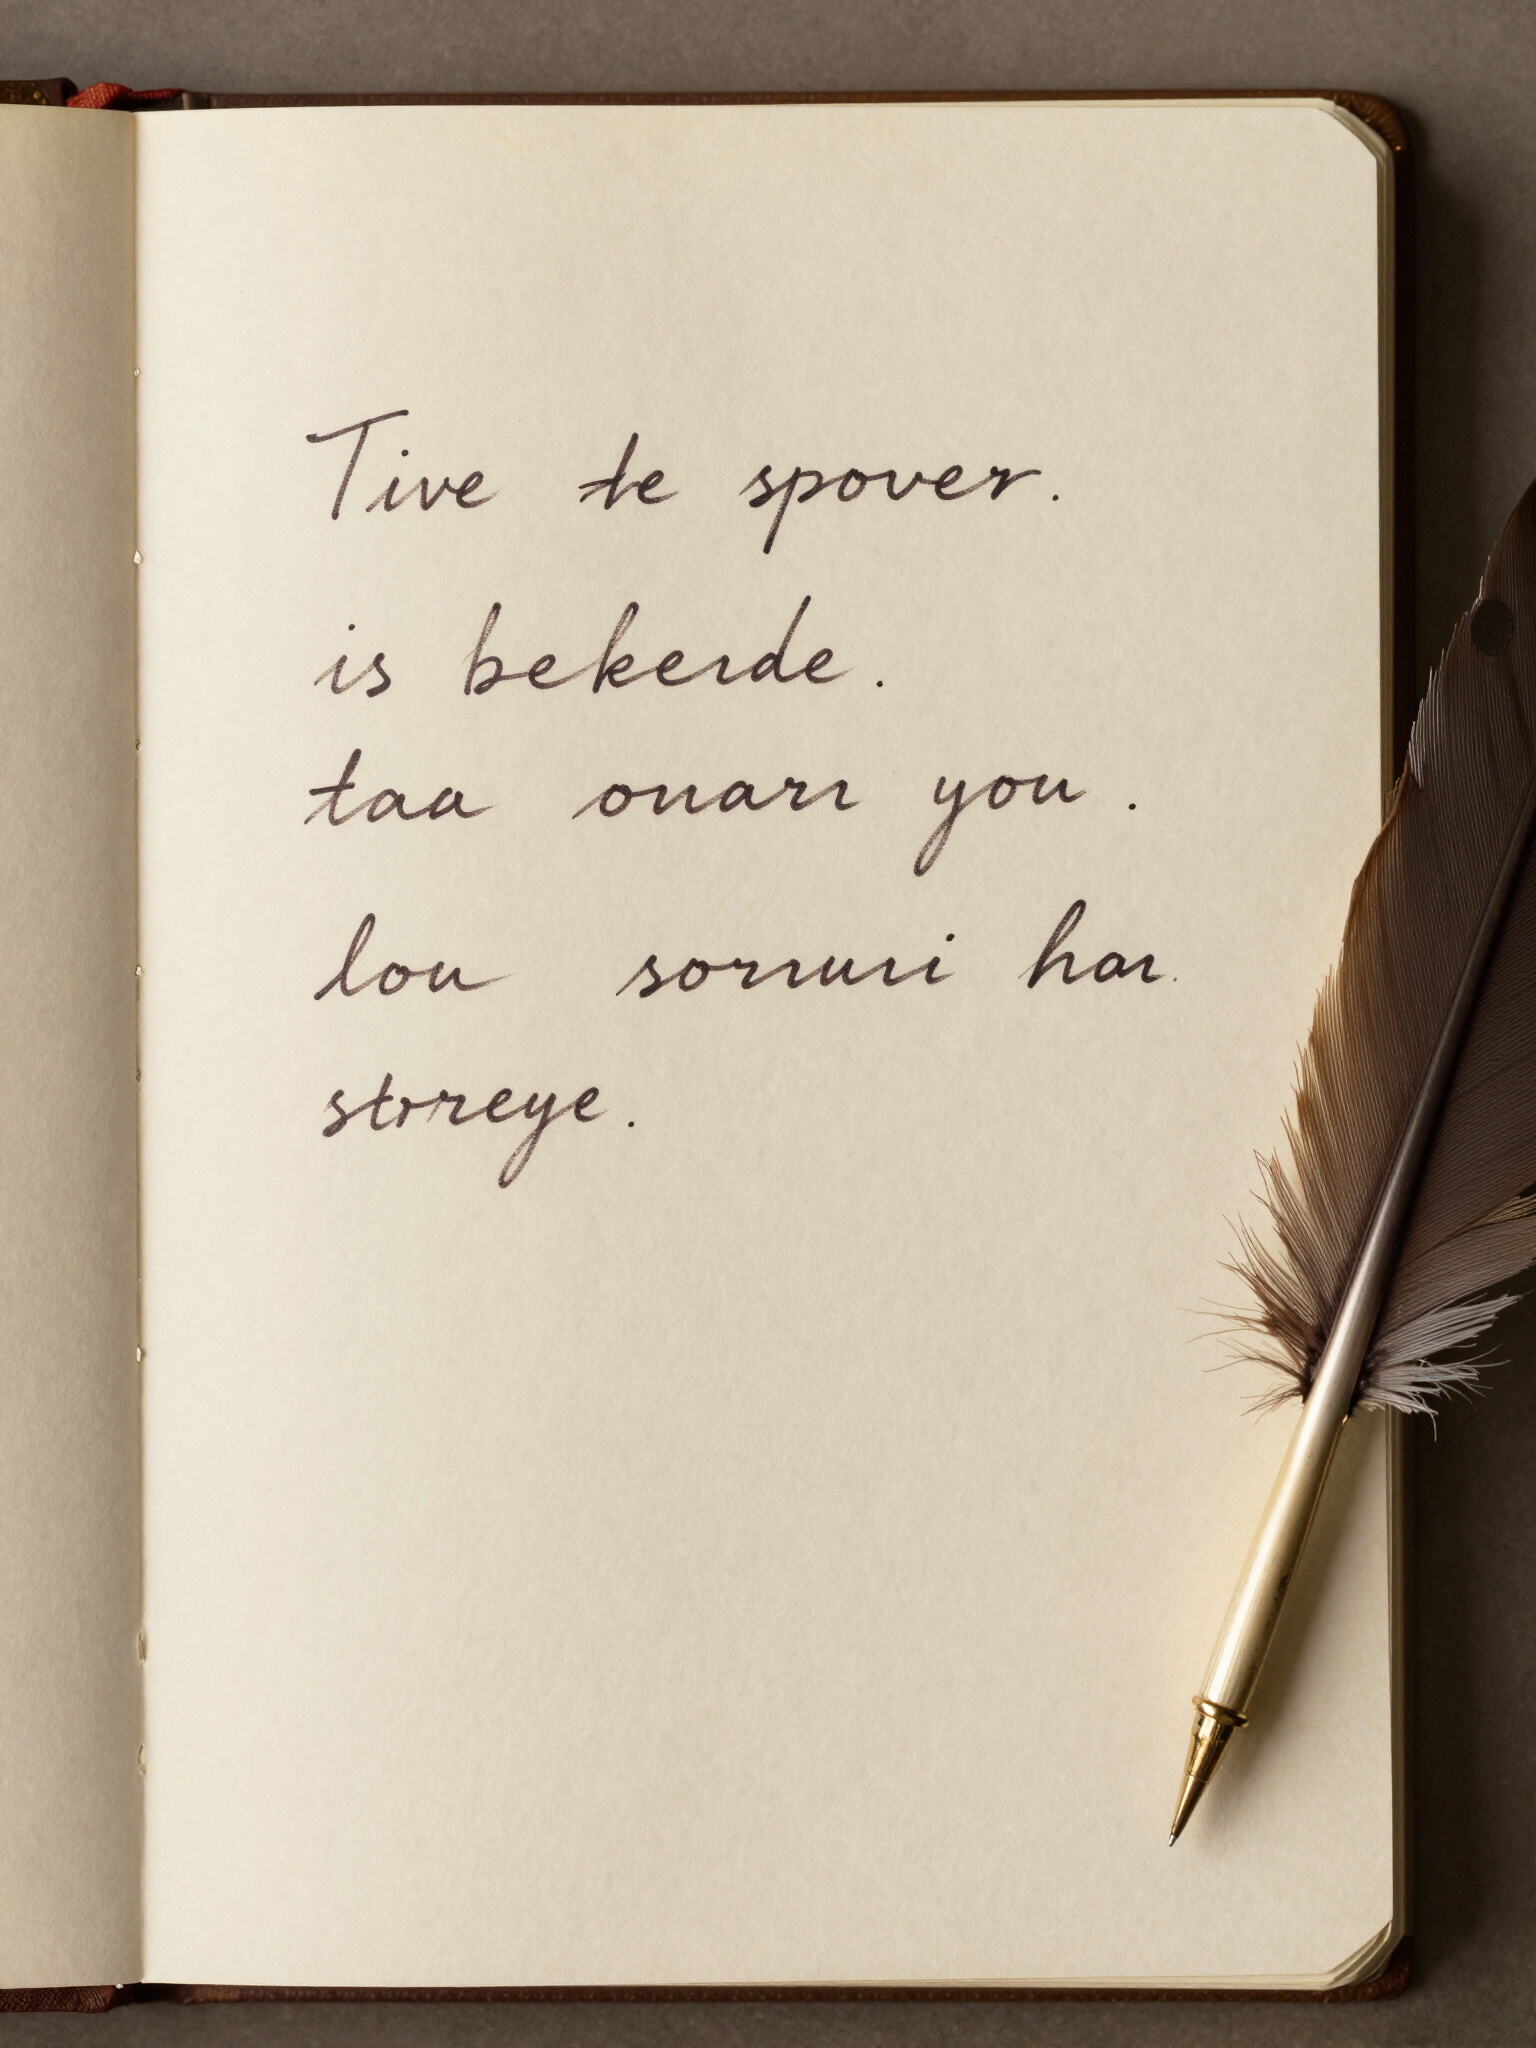 Tive te spover.
is bekende.
taa onarr you.
lou sorruri har.
strreye.